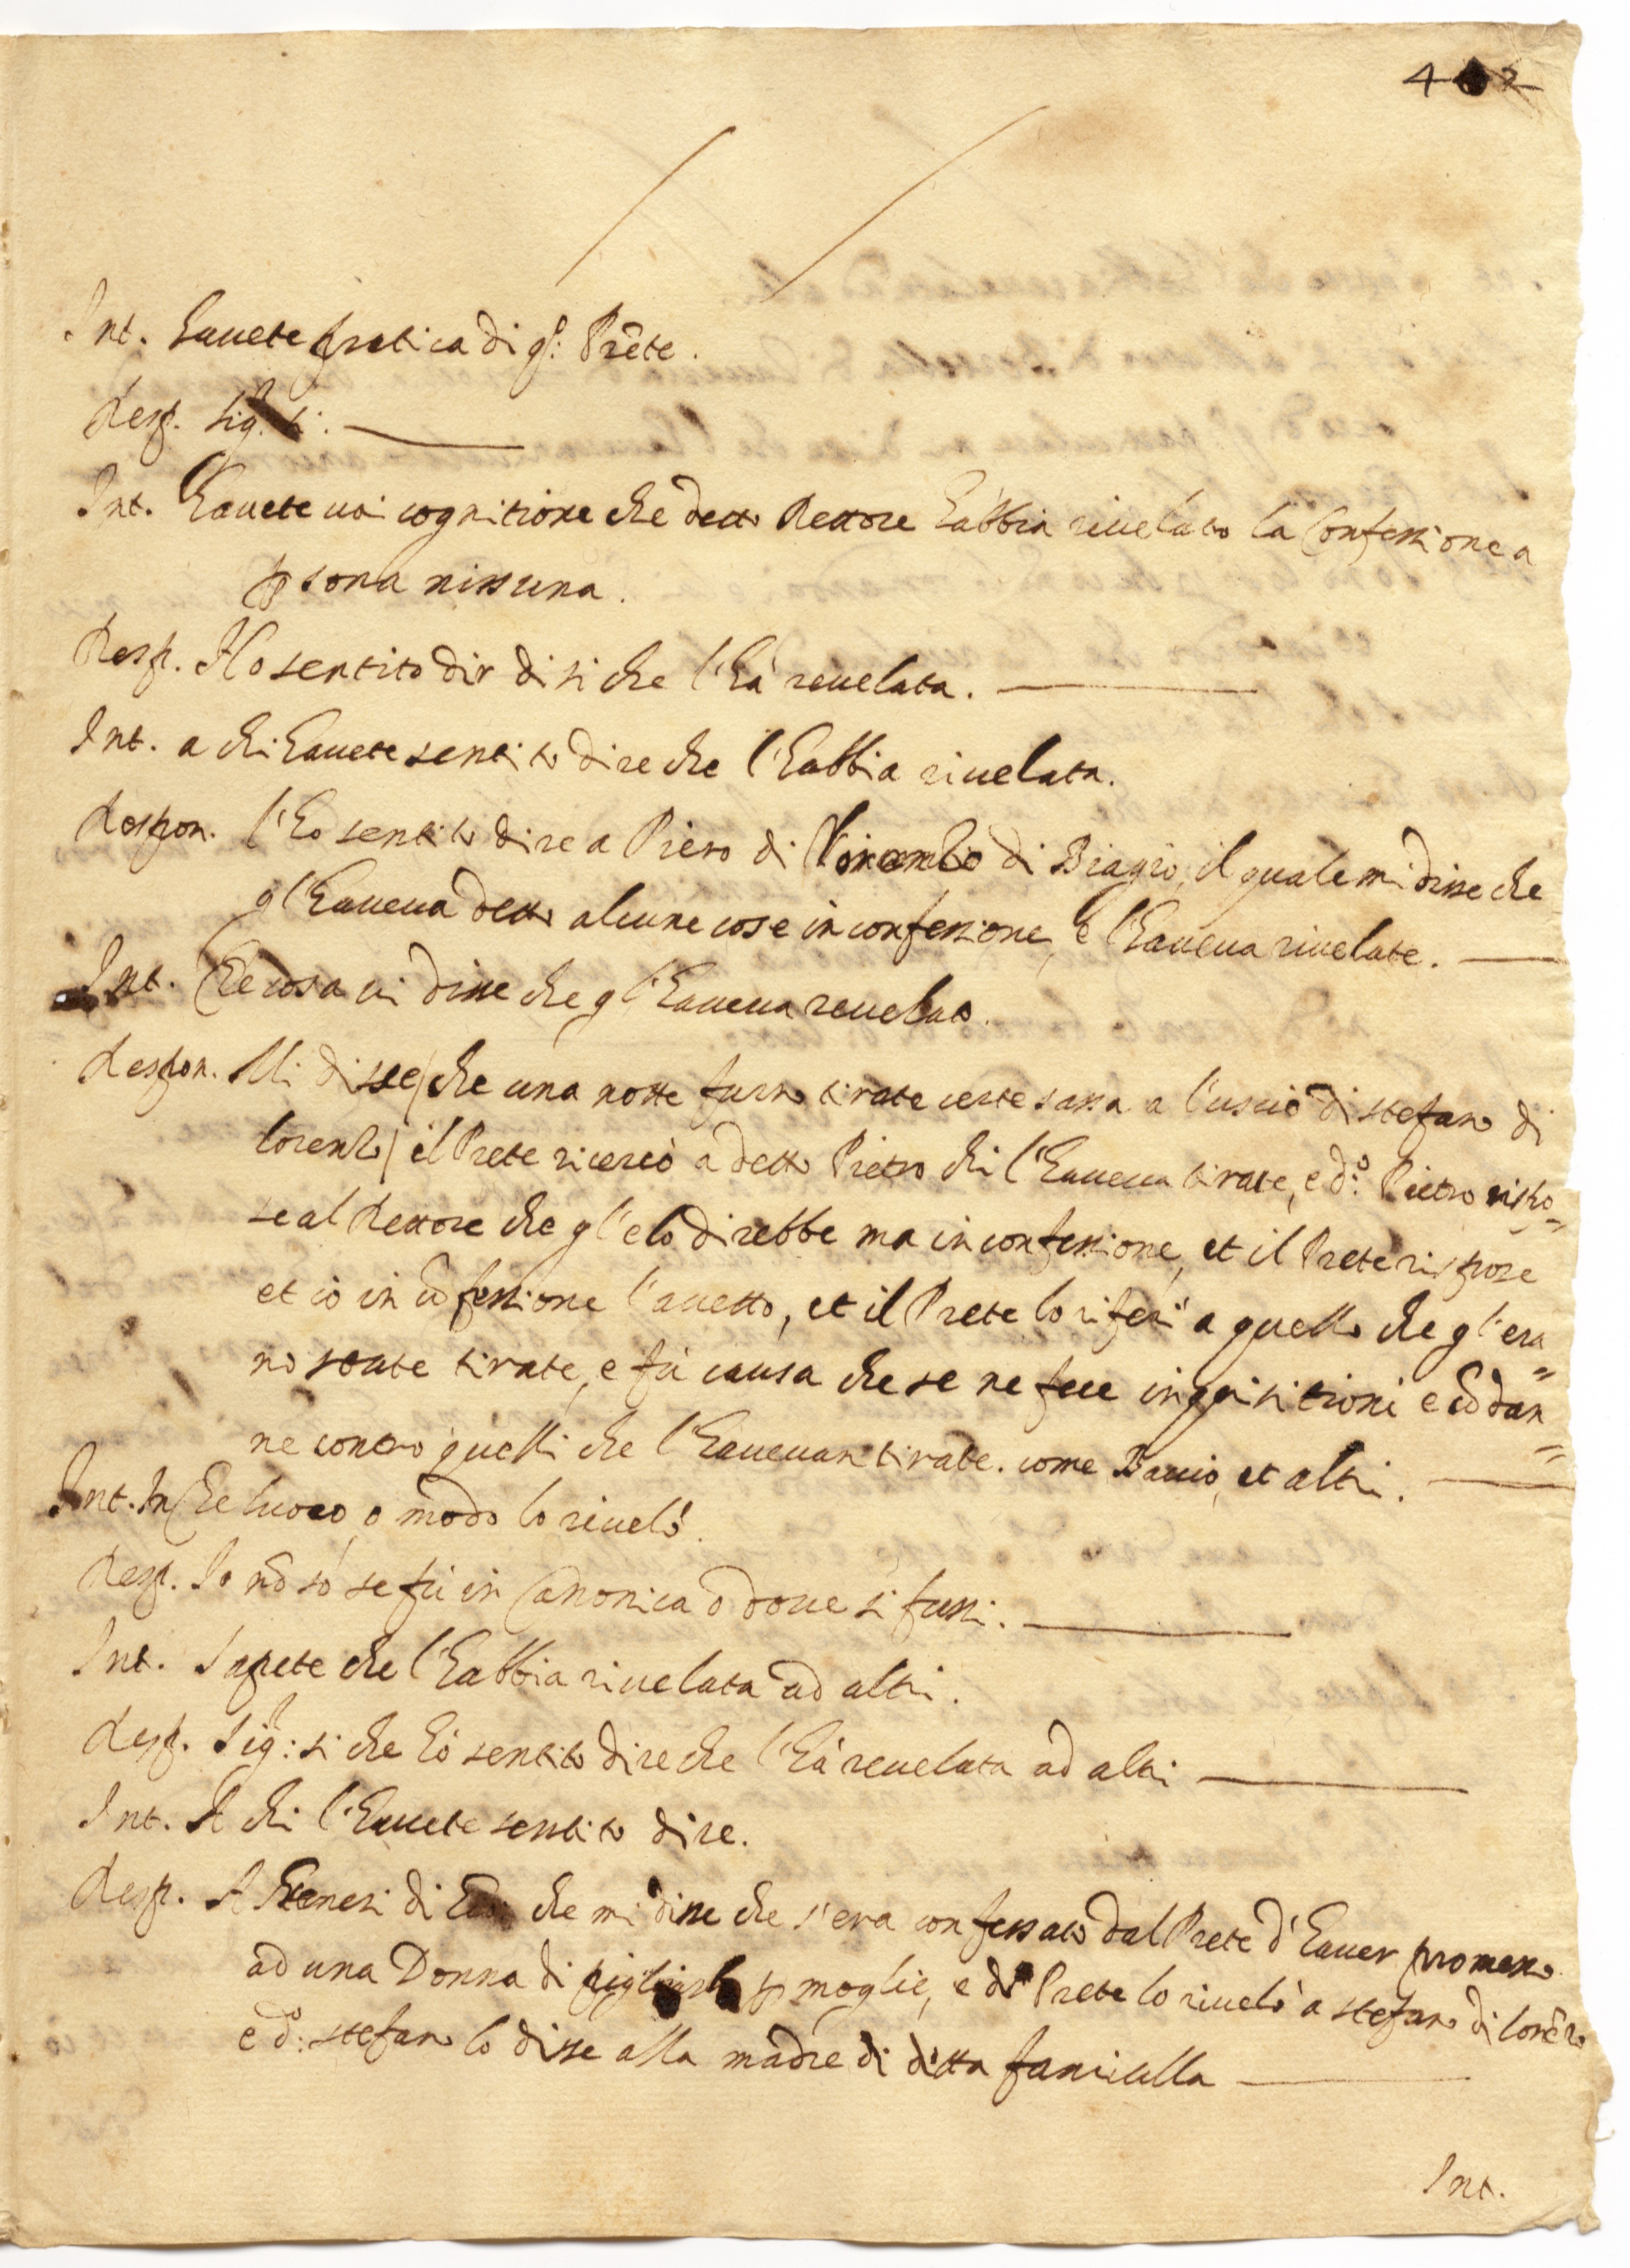 Int. hauete pratica di q.º Prete.
Resp. Sig.r si.
Int. hauete uoi cognitione che detto Rettore habbia riuelato la Confessione a
psona nissuna.
Resp. Ho sentito dir di si che l'hà reuelata.
Int. a chi hauete sentito dire che l'habbia riuelata.
Respon. l'hò sentito dire a Piero di Vincentio di Biagio, il quale mi disse che
gl'haueua detto alcune cose in confessione, e l'haueua riuelate.
Int. Che cosa ui disse che gl'haueua reuelato.
Respon. Mi disse che una notte furno tirate certe sassa a l'uscio di stefano di
lorenzo il Prete ricercò a detto Pietro chi l'haueua tirate, e d.º Pietro rispo=
se al Rettore che gl'elo direbbe ma in confessione, et il Prete rispose
et io in cōfessione l'accetto, et il Prete lo riferì a quello che gl'era=
no state tirate, e fù causa che se ne fece inquisitioni e cōdan=
ne contro quelli che l'haueuan tirate. come Baccio, et altri.
Int. In Che luoco, o modo lo riuelò.
Resp. Io nō sò se fù in Canonica ò doue si fussi.
Int. Sapete che l'habbia riuelata ad altri.
Resp. Sig.r si che hò sentito dire che l'hà reuelata ad altri
Int. A chi l'hauete sentito dire.
Resp. A di che mi disse che s'era confessato dal Prete d'hauer promesso
ad una Donna di p moglie, e d.º Prete lo riuelò a stefano di lorēzo
e d.º: stefano lo disse alla madre di ditta fanciulla
Int.